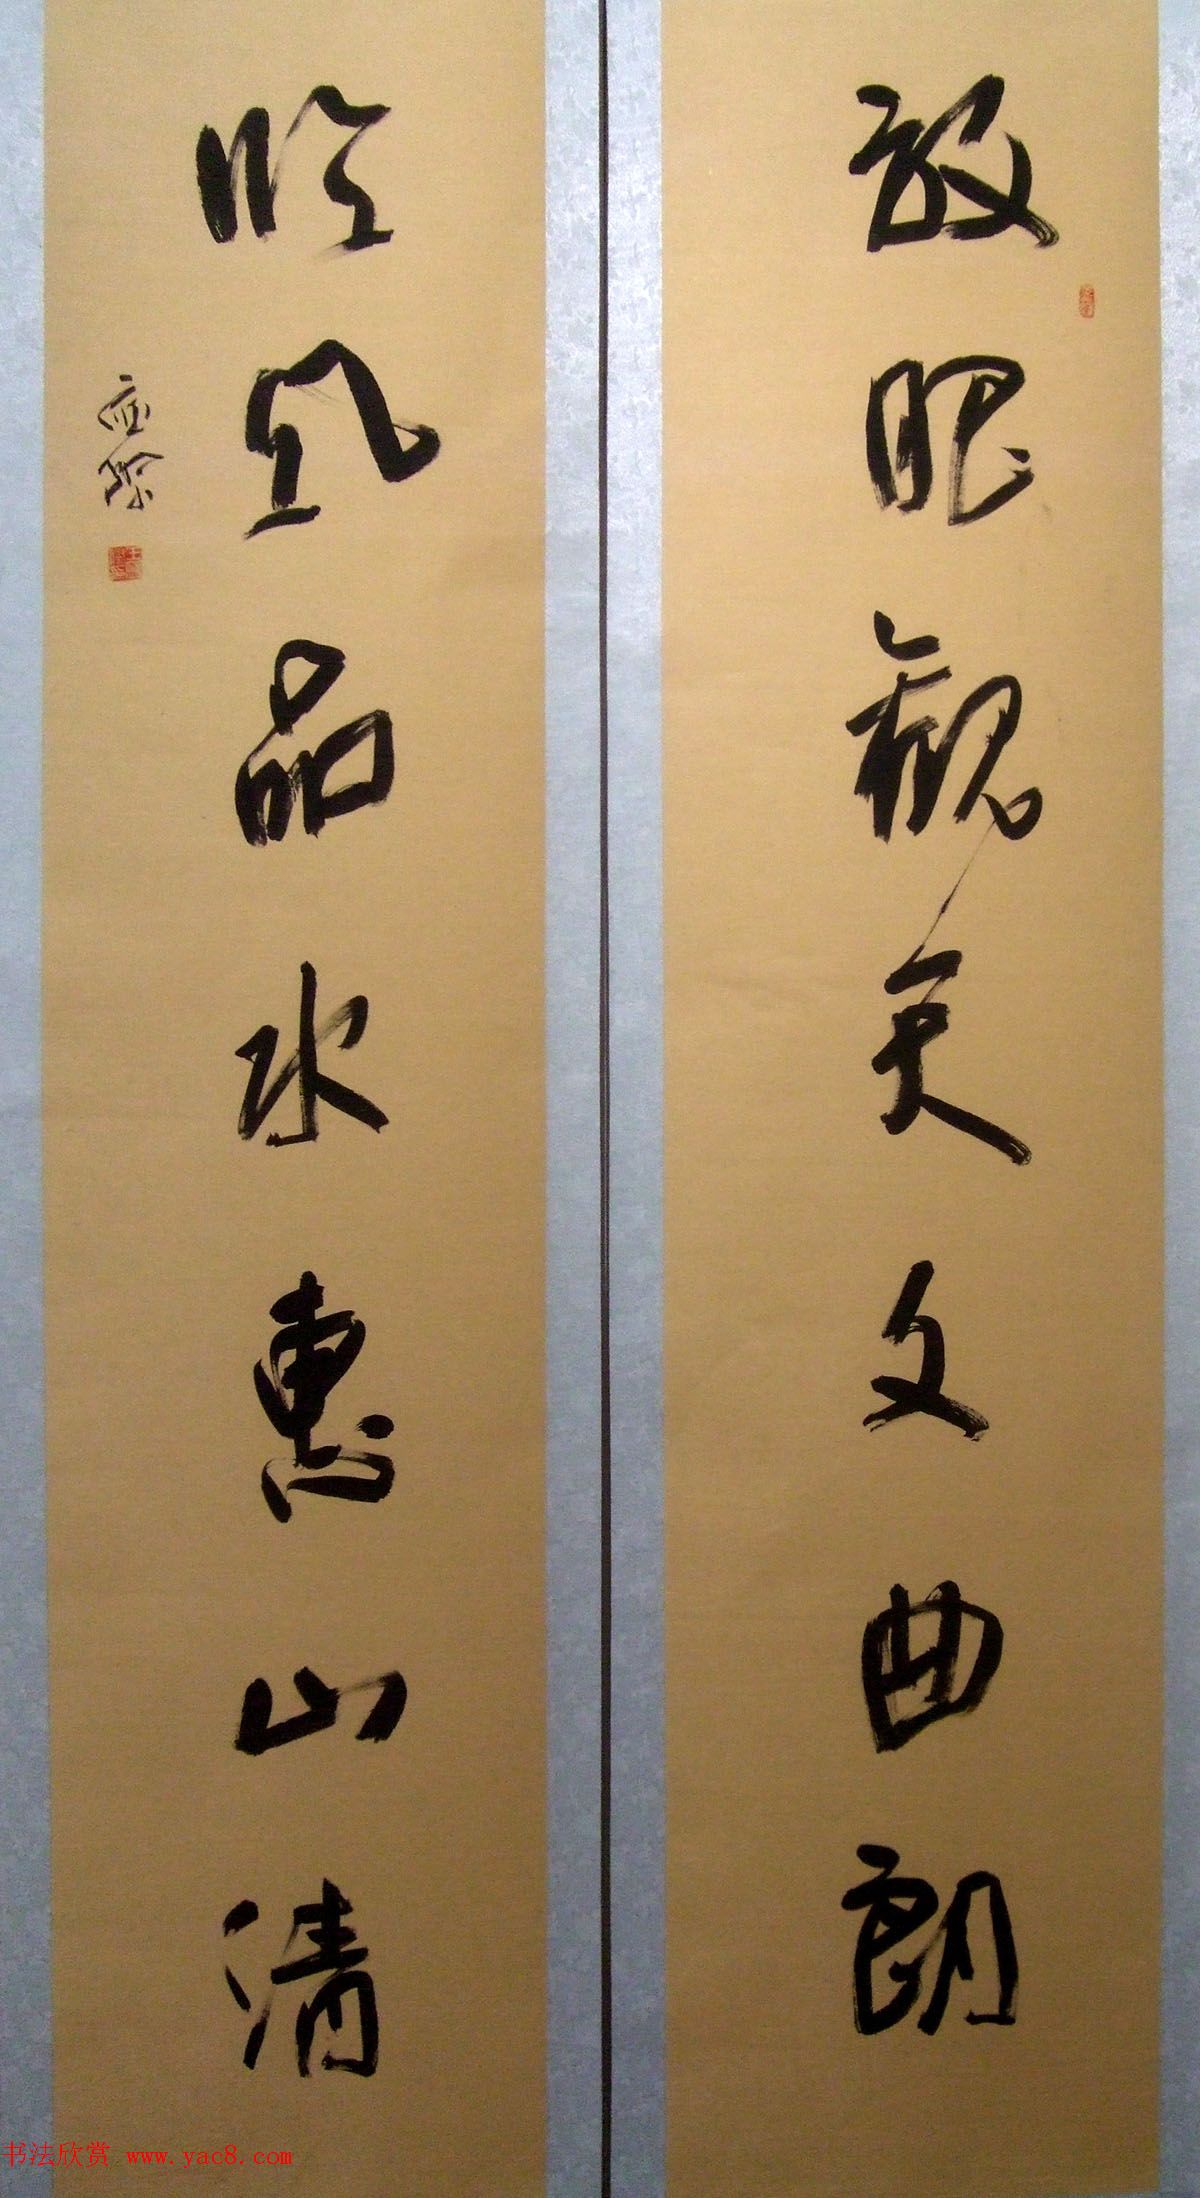 放眼觀天文曲朗
臨風品水惠山清
應黎
书法欣赏 www.yac8.com